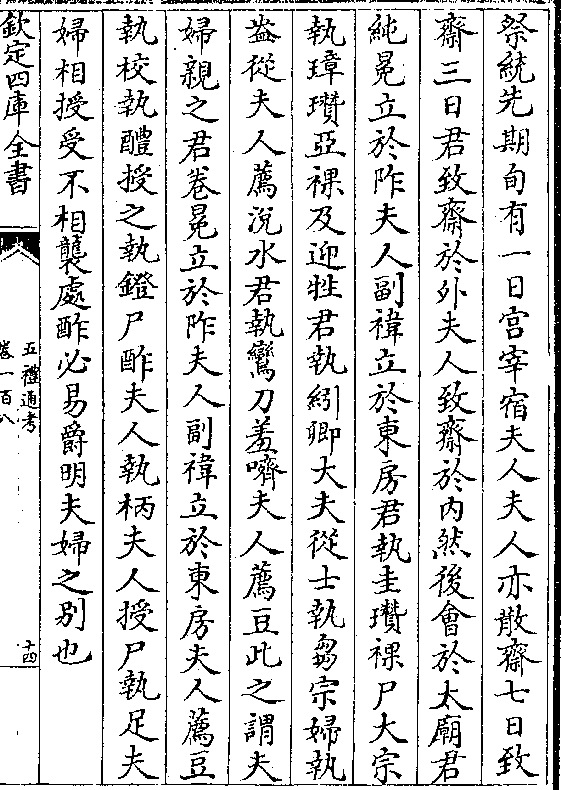 祭統先期旬有一日宫宰宿夫人夫人亦散齋七日致
齋三日君致齋於外夫人致齋於内然後會於太廟君
純冕立於阼夫人副褘立於東房君執圭瓚祼尸大宗
執璋瓚亞祼及迎牲君執紖卿大夫從士執芻宗婦執
盎從夫人薦涗水君執鸞刀羞嚌夫人薦豆此之謂夫
婦親之君卷冕立於阼夫人副褘立於東房夫人薦豆
執校執醴授之執鐙尸酢夫人執柄夫人授尸執足夫
婦相授受不相襲處酢必易爵明夫婦之别也
欽定四庫全書
五禮通考
卷一百八
十四